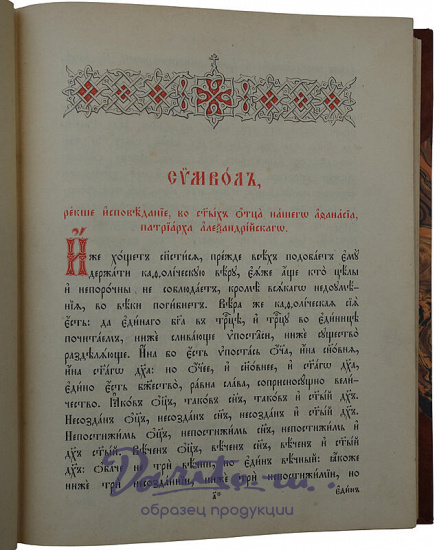 СѶМВО́ЛЪ,
ре́кше и҆сповѣ́данїе, во ст҃ы́хъ ѻ҆тца̀ на́шегѡ а҆ѳана́сїа,
патрїа́рха а҆леѯандрі́йскагѡ.
И҆́же хо́щетъ сп҃сти́сѧ, пре́жде всѣ́хъ подоба́етъ є҆мꙋ̀
держа́ти каѳоли́ческꙋю вѣ́рꙋ, є҆ѧ́же а҆́ще кто̀ цѣ́лы
и҆ непоро́чны не соблюда́етъ, кромѣ̀ всѧ́кагѡ недоꙋмѣ́-
нїѧ, во вѣ́ки поги́бнетъ. Вѣ́ра же каѳоли́ческаѧ сїѧ̀
є҆́сть: да є҆ди́наго бг҃а въ трⷪ҇цѣ, и҆ трⷪ҇цꙋ во є҆ди́ницѣ
почита́емъ, нижѐ слива́юще ѵ҆поста̑си, нижѐ сꙋщество̀
раздѣлѧ́юще. И҆́на бо є҆́сть ѵ҆поста́сь ѻ҆́ч҃а, и҆́на сн҃о́внѧ,
и҆́на ст҃а́гѡ дх҃а: но ѻ҆́ч҃ее, и҆ сн҃о́внее, и҆ ст҃а́гѡ дх҃а,
є҆ди́но є҆́сть бж҃ество̀, ра́вна сла́ва, соприсносꙋ́щно вели́-
чество. Ꙗ҆ко́въ ѻ҆ц҃ъ, тако́въ сн҃ъ, тако́въ и҆ ст҃ы́й дх҃ъ.
Несозда́нъ ѻ҆ц҃ъ, несозда́нъ сн҃ъ, несозда́нъ и҆ ст҃ы́й дх҃ъ.
Непостижи́мь ѻ҆ц҃ъ, непостижи́мь сн҃ъ, непостижи́мь и҆
ст҃ы́й дх҃ъ. Вѣ́ченъ ѻ҆ц҃ъ, вѣ́ченъ сн҃ъ, вѣ́ченъ и҆ ст҃ы́й
дх҃ъ: ѻ҆ба́че не трѝ вѣ̑чни, но є҆ди́нъ вѣ́чный: ꙗ҆́коже
нижѐ трѝ несозда́ннїи, нижѐ трѝ непостижи́мїи, но
є҆ди́нъ
образец продукции